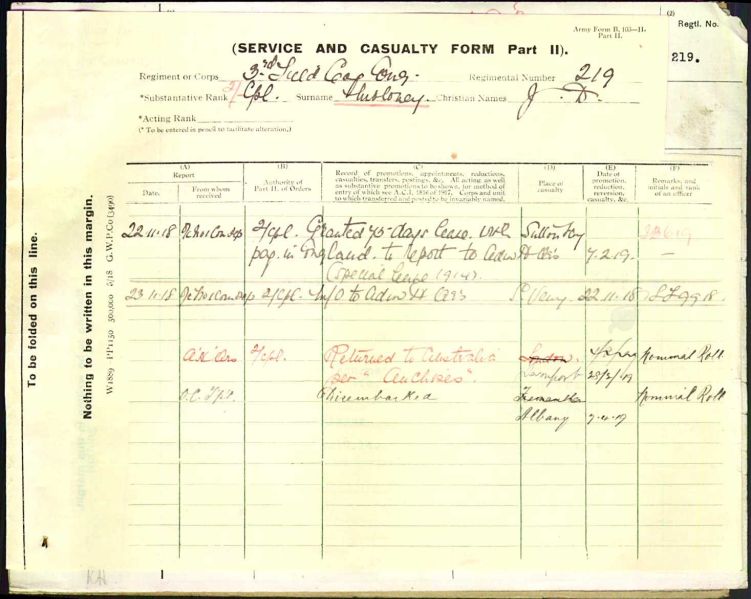 (2)
Regtl. No.
219.
Army Form B. 103—II.
Part II.
(SERVICE AND CASUALTY FORM Part II).
Regiment or Corps 3rd Field Coy Eng. Regimental Number 219
*Substantive Rank 2/Cpl. Surname Christian Names J. D.
*Acting Rank
(* To be entered in pencil to facilitate alteration.)
(A)
Report
Date.
From whom received
(B)
Authority of Part II. of Orders
(C)
Record of promotions, appointments, reductions, casualties, transfers, postings, &c. All acting as well as substantive promotions to be shown, for method of entry of which see A.C.I. 1816 of 1917. Corps and unit to which transferred and posted to be invariably named.
(D)
Place of casualty
(E)
Date of promotion, reduction, reversion, casualty, &c.
(F)
Remarks, and initials and rank of an officer
22-11-18 2/Cpl. Granted 75-days leave with Sutton
pay in England. to report to Adm H Qrs 7.2.19. —
(special leave 1914).
23-11-18 2/Cpl. M/O to Adm H Qrs 22-11-18
2/Cpl. Returned to Australia Nominal Roll
per "Anchises". Devonport 28/2/19
O.C. Disembarked Fremantle Nominal Roll
Albany 7-4-19
To be folded on this line.
Nothing to be written in this margin.
W1889 PP1150 500,000 5/18 G.W.P.Co
KH